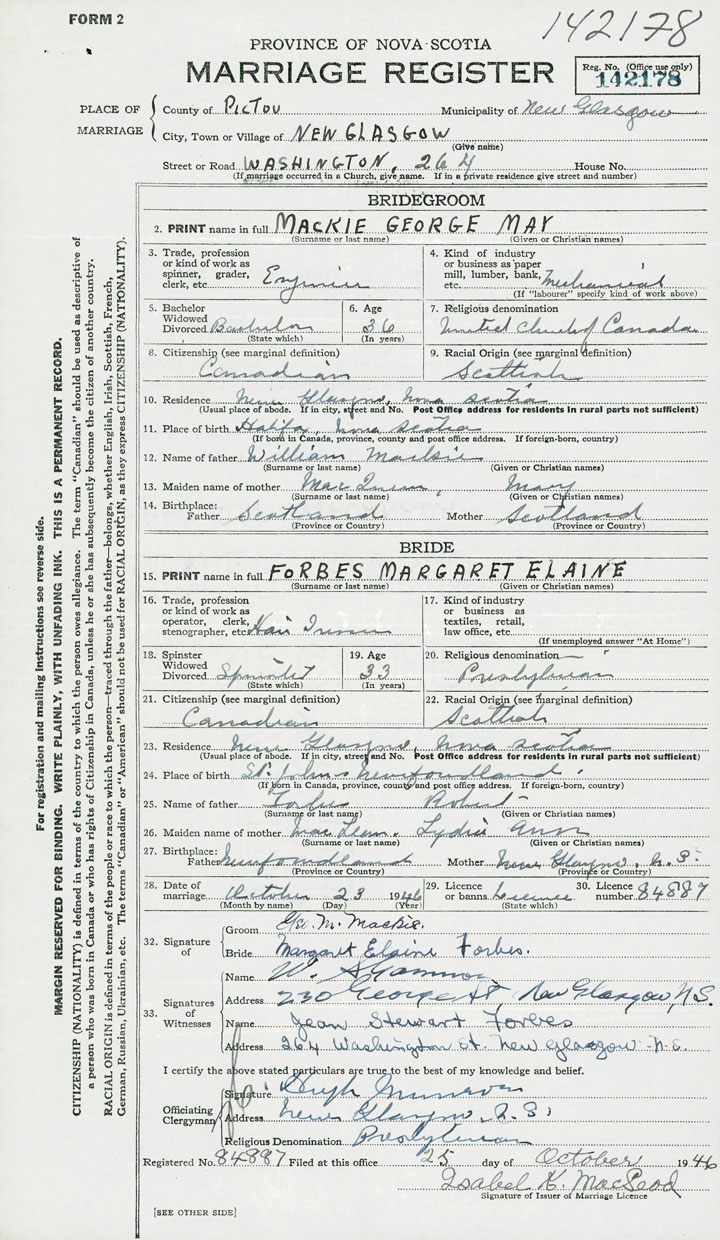 FORM 2
142178
PROVINCE OF NOVA SCOTIA
MARRIAGE REGISTER
Reg. No. (Office use only)
142178
PLACE OF MARRIAGE
County of Pictou Municipality of New Glasgow
City, Town or Village of NEW GLASGOW
(Give name)
Street or Road WASHINGTON, 264 House No.
(If marriage occurred in a Church, give name. If in a private residence give street and number)
BRIDEGROOM
2. PRINT name in full MACKIE GEORGE MAY
(Surname or last name) (Given or Christian names)
3. Trade, profession or kind of work as spinner, grader, clerk, etc. Engineer
4. Kind of industry or business as paper mill, lumber, bank, etc. Mechanical
(If "labourer" specify kind of work above)
5. Bachelor Widowed Divorced Bachelor
(State which)
6. Age 36
(In years)
7. Religious denomination
United Church of Canada
8. Citizenship (see marginal definition)
Canadian
9. Racial Origin (see marginal definition)
Scottish
10. Residence New Glasgow, Nova Scotia
(Usual place of abode. If in city, street and No. Post Office address for residents in rural parts not sufficient)
11. Place of birth Halifax, Nova Scotia
(If born in Canada, province, county and post office address. If foreign-born, country)
12. Name of father William Mackie
(Surname or last name) (Given or Christian names)
13. Maiden name of mother Mary
(Surname or last name) (Given or Christian names)
14. Birthplace: Father Scotland Mother Scotland
(Province or Country) (Province or Country)
BRIDE
15. PRINT name in full FORBES MARGARET ELAINE
(Surname or last name) (Given or Christian names)
16. Trade, profession or kind of work as operator, clerk, stenographer, etc. Hair Dresser
17. Kind of industry or business as textiles, retail, law office, etc.
(If unemployed answer "At Home")
18. Spinster Widowed Divorced Spinster
(State which)
19. Age 33
(In years)
20. Religious denomination
Presbyterian
21. Citizenship (see marginal definition)
Canadian
22. Racial Origin (see marginal definition)
Scottish
23. Residence New Glasgow, Nova Scotia
(Usual place of abode. If in city, street and No. Post Office address for residents in rural parts not sufficient)
24. Place of birth St. Johns Newfoundland
(If born in Canada, province, county and post office address. If foreign-born, country)
25. Name of father Forbes Robert
(Surname or last name) (Given or Christian names)
26. Maiden name of mother MacLean. Lydia Ann
(Surname or last name) (Given or Christian names)
27. Birthplace: Father Newfoundland Mother New Glasgow, N.S.
(Province or Country) (Province or Country)
28. Date of marriage October 23 1946
(Month by name) (Day) (Year)
29. Licence or banns Licence
(State which)
30. Licence number 84887
32. Signature of
Groom Geo. M. Mackie.
Bride Margaret Elaine Forbes.
33. Signatures of Witnesses
Name
Address 230 George St, New Glasgow, N.S.
Name Jean Stewart Forbes
Address 264 Washington St. New Glasgow N.S.
I certify the above stated particulars are true to the best of my knowledge and belief.
Officiating Clergyman
Signature Hugh
Address New Glasgow, N.S.
Religious Denomination Presbyterian
Registered No. 84887 Filed at this office 25 day of October 1946
Isabel K. MacLeod
Signature of Issuer of Marriage Licence
[SEE OTHER SIDE]
For registration and mailing instructions see reverse side.
MARGIN RESERVED FOR BINDING. WRITE PLAINLY, WITH UNFADING INK. THIS IS A PERMANENT RECORD.
CITIZENSHIP (NATIONALITY) is defined in terms of the country to which the person owes allegiance. The term "Canadian" should be used as descriptive of
a person who was born in Canada or who has rights of Citizenship in Canada, unless he or she has subsequently become the citizen of another country.
RACIAL ORIGIN is defined in terms of the people or race to which the person—traced through the father—belongs, whether English, Irish, Scottish, French,
German, Russian, Ukrainian, etc. The terms "Canadian" or "American" should not be used for RACIAL ORIGIN, as they express CITIZENSHIP (NATIONALITY).